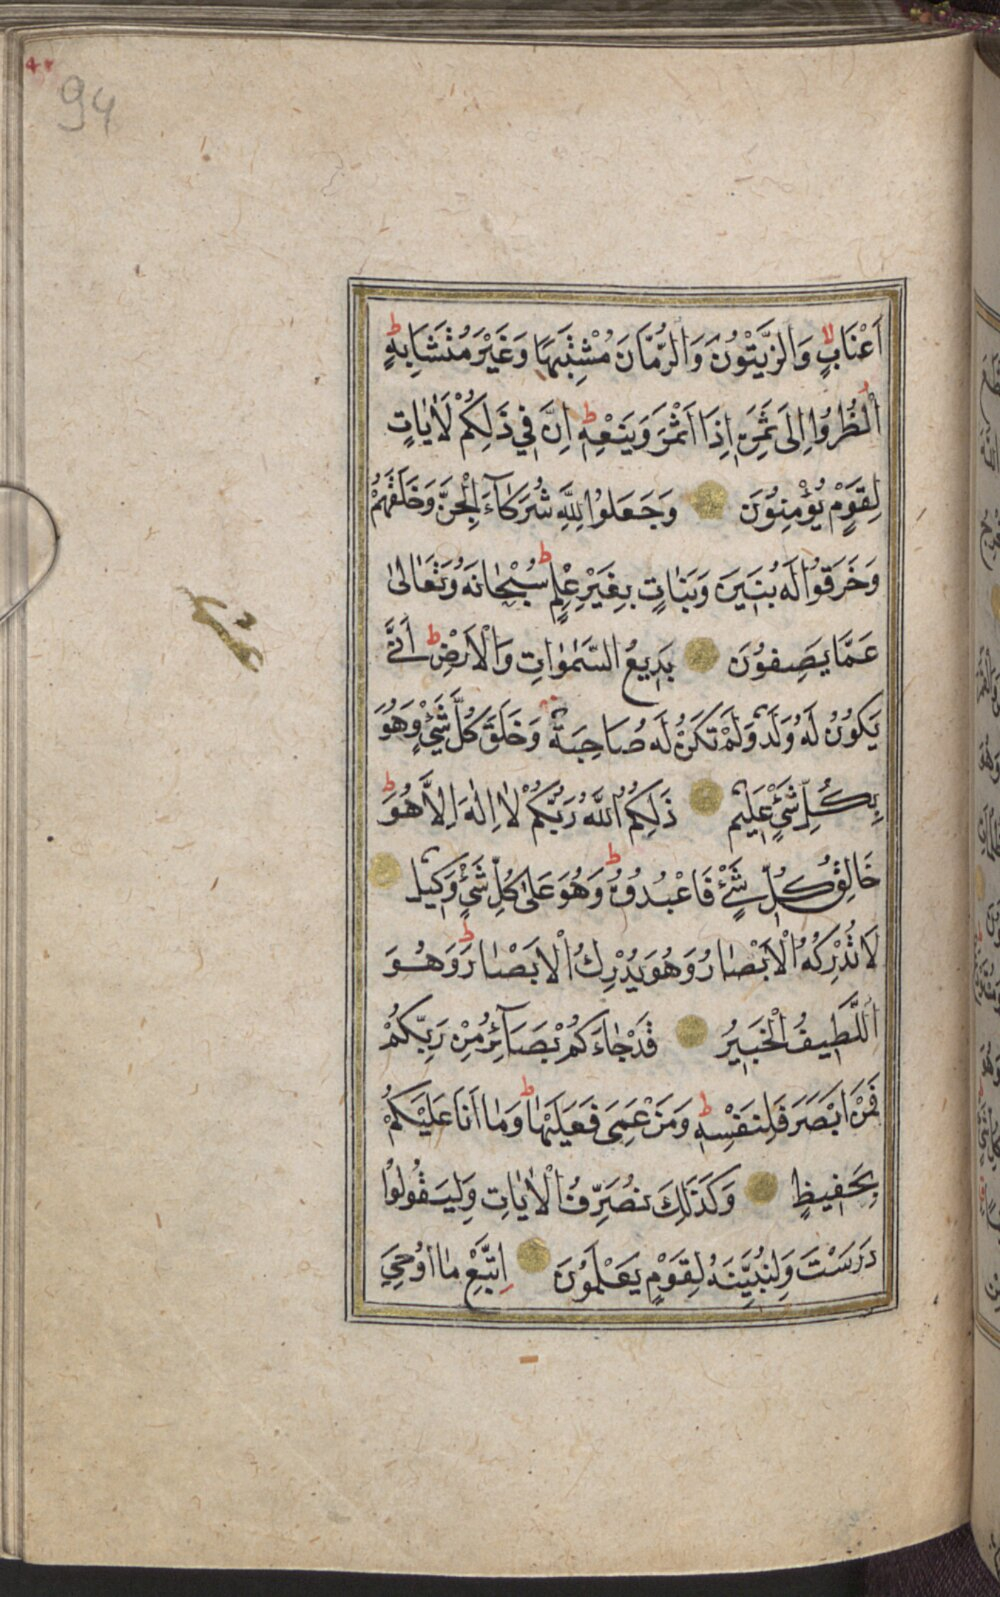 94
اَعْنَابٍ وَالزَّيْتُوْنَ وَالرُّمَّانَ مُشْتَبِهًا وَغَيْرَ مُتَشَابِهٍ ط
اُنْظُرُوا اِلَى ثَمَرِهٖ اِذَا اَثْمَرَ وَيَنْعِهٖ ط اِنَّ فِي ذَلِكُمْ لَاٰيَاتٍ
لِقَوْمٍ يُؤْمِنُوْنَ وَجَعَلُوْا لِلّٰهِ شُرَكَآءَ الْجِنَّ وَخَلَقَهُمْ
وَخَرَقُوْا لَهُ بَنِيْنَ وَبَنَاتٍ بِغَيْرِ عِلْمٍ ط سُبْحَانَهُ وَتَعَالٰى
عَمَّا يَصِفُوْنَ بَدِيعُ السَّمٰوَاتِ وَالْاَرْضِ ط اَنّٰى
يَكُوْنُ لَهُ وَلَدٌ وَلَمْ تَكُنْ لَهُ صَاحِبَةٌ ط وَخَلَقَ كُلَّ شَيْءٍ وَهُوَ
بِكُلِّ شَيْءٍ عَلِيْمٌ ذَلِكُمُ اللّٰهُ رَبُّكُمْ لَا اِلٰهَ اِلَّا هُوَ ط
خَالِقُ كُلِّ شَيْءٍ فَاعْبُدُوْهُ ط وَهُوَ عَلَى كُلِّ شَيْءٍ وَكِيْلٌ
لَا تُدْرِكُهُ الْاَبْصَارُ وَهُوَ يُدْرِكُ الْاَبْصَارَ ط وَهُوَ
اللَّطِيفُ الْخَبِيْرُ قَدْ جَاءَكُمْ بَصَآئِرُ مِنْ رَبِّكُمْ
فَمَنْ اَبْصَرَ فَلِنَفْسِهٖ ط وَمَنْ عَمِيَ فَعَلَيْهَا ط وَمَا اَنَا عَلَيْكُمْ
بِحَفِيظٍ وَكَذَلِكَ نُصَرِّفُ الْاٰيَاتِ وَلِيَقُولُوْا
دَرَسْتَ وَلِنُبَيِّنَهُ لِقَوْمٍ يَعْلَمُوْنَ اِتَّبِعْ مَا اُوْحِيَ